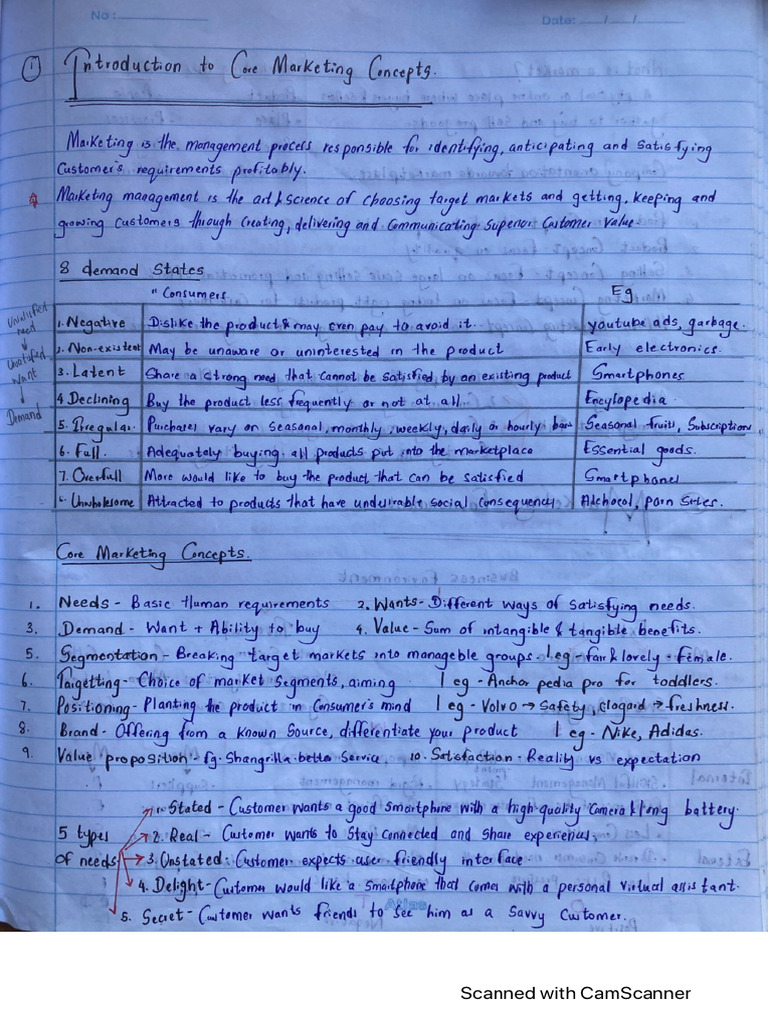 No :
Date: / /
① Introduction to Core Marketing Concepts.
Marketing is the management process responsible for identifying, anticipating and satisfying
Customer's requirements profitably.
Marketing management is the art & science of choosing target markets and getting, keeping and
growing customers through creating, delivering and communicating superior customer value.
8 demand States
"Consumers
Eg
Unsatisfied need ↓ Unsatisfied want ↓ Demand
1. Negative Dislike the product & may even pay to avoid it. youtube ads, garbage.
2. Non-existent May be unaware or uninterested in the product Early electronics.
3. Latent Share a strong need that cannot be satisfied by an existing product Smartphones
4 Declining Buy the product less frequently or not at all.. Encylopedia.
5. Irregular. Purchases vary on seasonal, monthly, weekly, daily or hourly basis Seasonal fruits, Subscriptions
6. Full. Adequately buying all products put into the marketplace Essential goods.
7. Overfull More would like to buy the product that can be satisfied Smartphones
Unwholesome Attracted to products that have undesirable social consequency Alchocol, porn sites.
Core Marketing Concepts.
1. Needs - Basic Human requirements 2. Wants- Different ways of satisfying needs.
3. Demand - Want + Ability to buy 4. Value - Sum of intangible & tangible benefits.
5. Segmentation - Breaking target markets into manageble groups. | eg - fair & lovely - female.
6. Targetting- Choice of market segments, aiming | eg - Anchor pedia pro for toddlers.
7. Positioning - Planting the product in Consumer's mind | eg - Volvo → Safety, clogard → freshness.
8. Brand - Offering from a known source, differentiate your product | eg - Nike, Adidas.
9. Value proposition - Eg. Shangrilla - better service. 10. Satisfaction - Reality vs expectation
5 types of needs
1. Stated - Customer wants a good smartphone with a high quality camera & long battery.
2. Real - Customer wants to stay connected and share experiences.
3. Unstated: Customer expects user friendly interface.
4. Delight - Customer would like a smartphone that comes with a personal virtual assistant.
5. Secret - Customer wants friends to see him as a savvy customer.
Atlas
Scanned with CamScanner